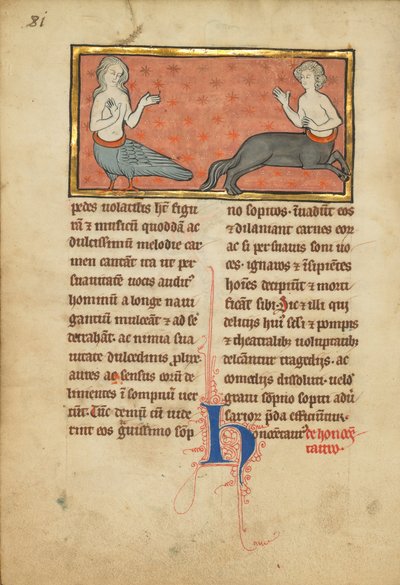 81
pedes uolatilis hñt figu
rã & musicũ quoddã ac
dulcissimũ melodie car
men cantãt ita ut per
suauitatẽ uocis auditꝰ
hominũ a longe naui
gantium mulceãt & ad se
detrahãt. ac nimia sua
uitate dulcedinis plure
aures ac sensus eorũ de
linientes ĩ sompniũ uer
tũt. Tũc demũ cũ uide
rint eos grauissimo sop
no sopitos. inuadũt eos
& dilaniant carnes eoꝝ
ac si persuasis soni uo
ces. ignaros & ĩsipiẽtes
hoĩes decipiũt & morti
ficãt sibi. Sic & illi qui
deliciis huiꝰ scĩi & pompis
& theatralibꝰ uoluptatibꝰ
delectãtur tragediis. ac
comediis dissoluti. uelꝰ
graui sopnio sopiti aduer
sarioꝝ p̃da efficiuntur.
Honocentaurꝰ de honocen
tauro.